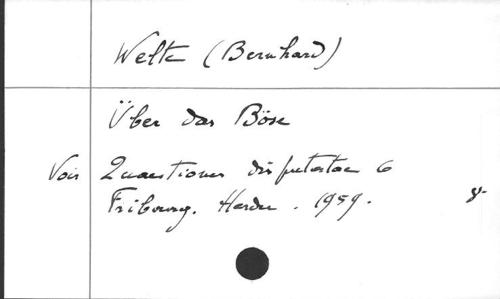 Welte (Bernhard)
Über das Böse
Voir Quaestiones disputatae 6
Fribourg. Herder. 1959.